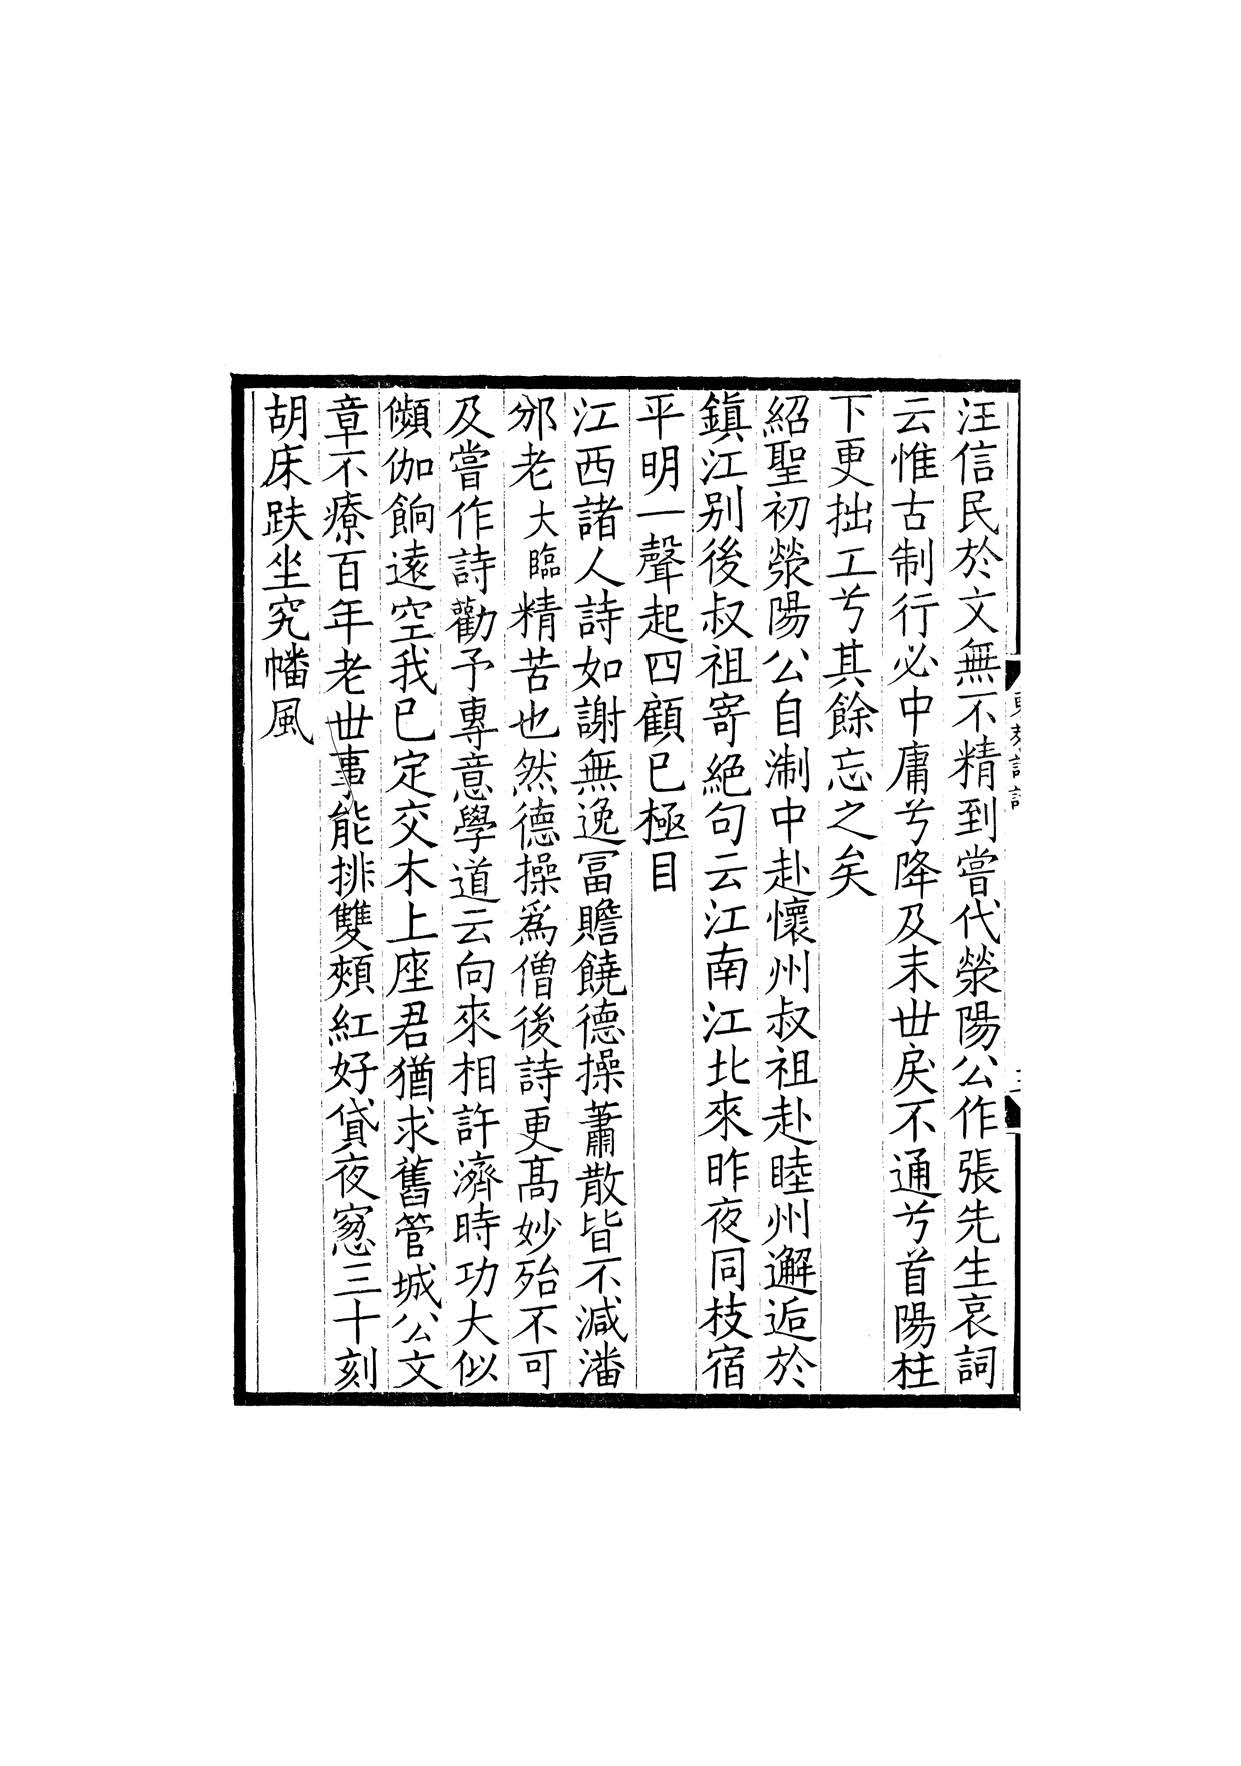 汪信民於文無不精到嘗代滎陽公作張先生哀詞
云惟古制行必中庸兮降及末世戾不通兮首陽柱
下更拙工兮其餘忘之矣
紹聖初滎陽公自淛中赴懷州叔祖赴睦州邂逅於
鎮江别後叔祖寄絕句云江南江北來昨夜同枝宿
平明一聲起四顧已極目
江西諸人詩如謝無逸冨贍饒德操蕭散皆不減潘
邠老大臨精苦也然德操爲僧後詩更髙妙殆不可
及嘗作詩勸予專意學道云向來相許濟時功大似
頻伽餉遠空我已定交木上座君猶求舊管城公文
章不療百年老世事能排雙頰紅好貸夜窻三十刻
胡床趺坐究幡風